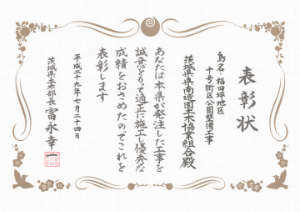 表彰状
島名・福田坪地区
十号街区公園整備工事
茨城県県南造園土木協業組合殿
あなたは本県が発注した工事を
誠意をもって適正に施工し優秀な
成績をおさめたのでこれを
表彰します
平成二十九年七月二十四日
茨城県土木部長 富永幸一